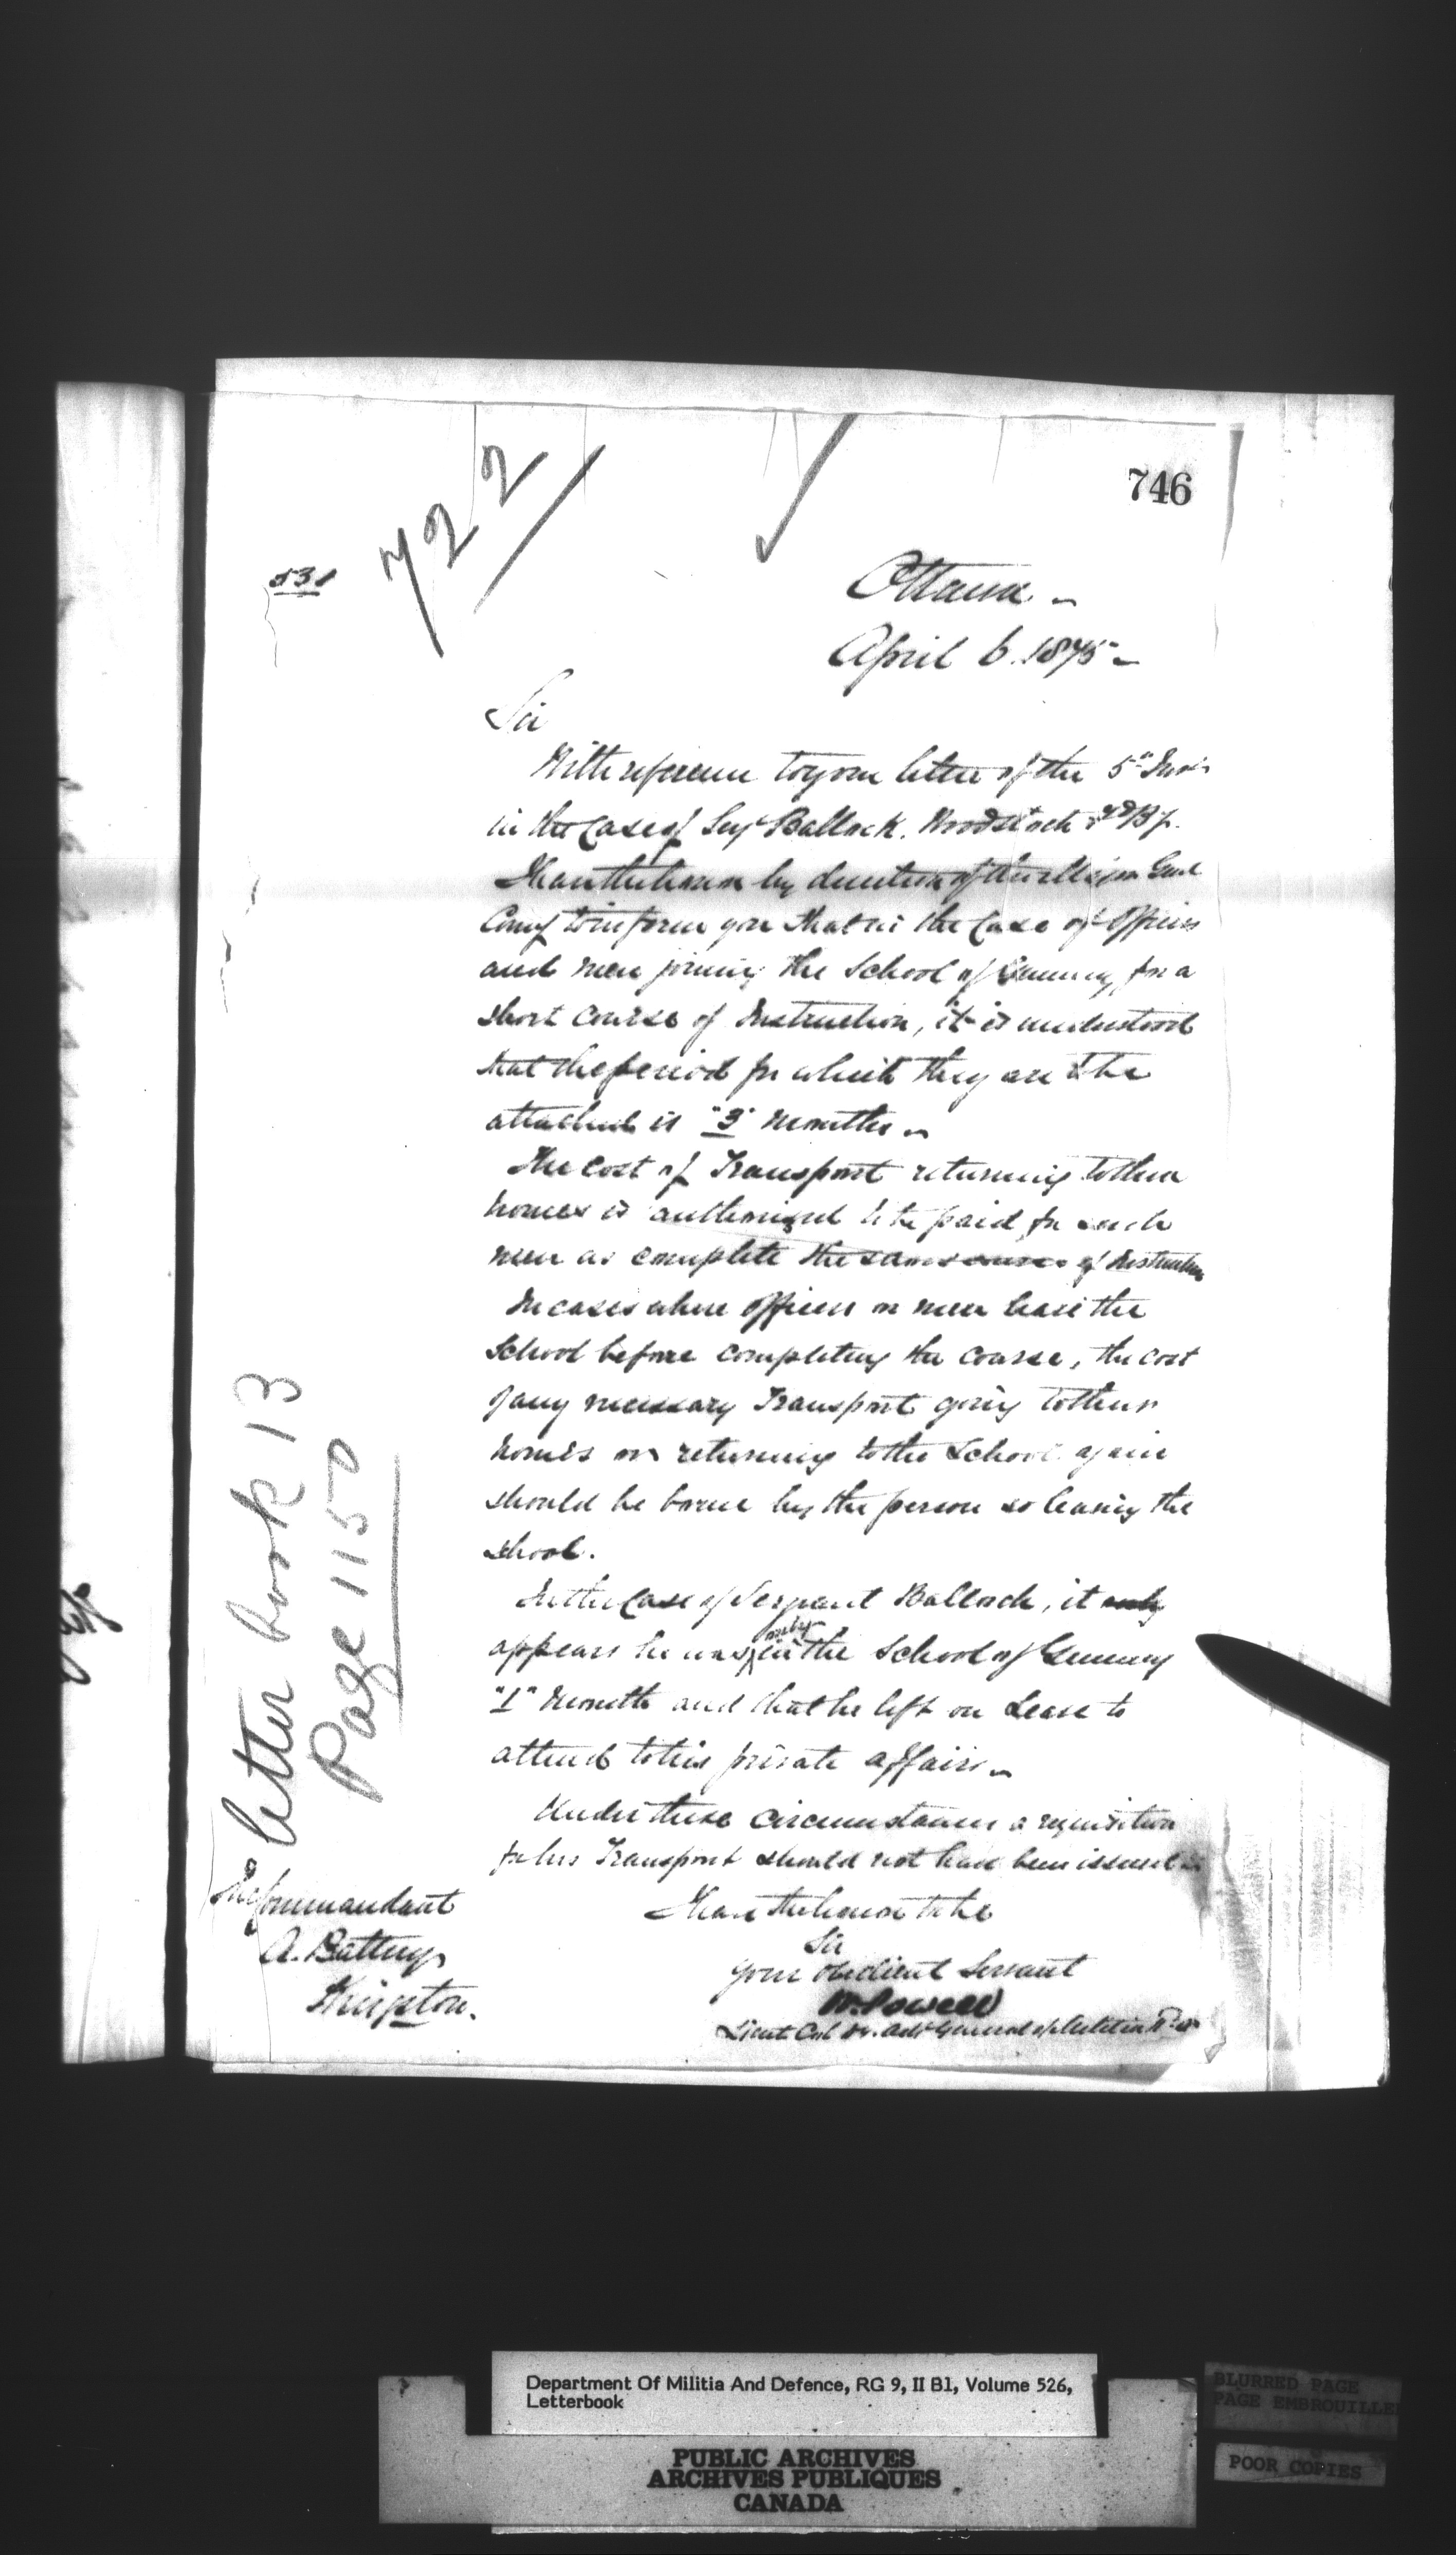 746
722
531
Ottawa
April 6. 1875
Sir
With reference to your letter of the 5th Inst
in the Case of Sergt Ballock. Woodstock Fd By.
I have the honor by direction of the Major Genl
Comg to inform you that in the Case of Officers
and men joining the School of Gunnery, for a
short course of Instruction, it is understood
that the period for which they are to be
attached is "3" months
The cost of Transport returning to their
homes is authorized to be paid for such
men as complete the same course of Instruction
In cases where officers or men leave the
School before completing the course, the cost
of any necessary Transport going to their
homes or returning to the School again
should be borne by the person so leaving the
school.
In the Case of Sergeant Ballock, it only
appears he was only in the School of Gunnery
"1" month and that he left on Leave to
attend to his private affairs
Under these circumstances a requisition
for his Transport should not have been issued
I have the honor to be
Sir
your obedient Servant
W. Powell
Lieut Col Dy. Adjt General of Militia
The Commandant
A. Battery
Kingston.
letter book 13
Page 1150
Department Of Militia And Defence, RG 9, II B1, Volume 526,
Letterbook
PUBLIC ARCHIVES
ARCHIVES PUBLIQUES
CANADA
BLURRED PAGE
PAGE EMBROUILLE
POOR COPIES